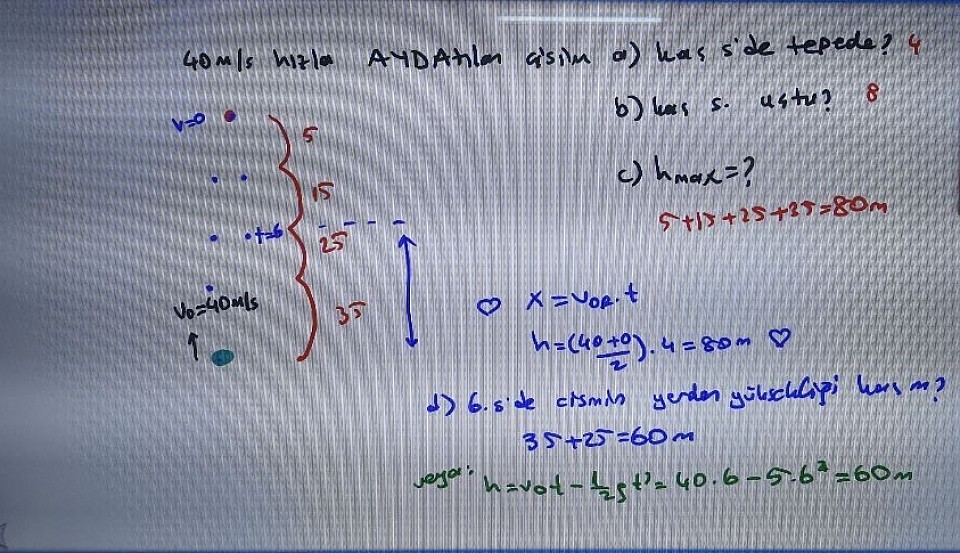 40m/s hızla AYDAtılan cisim a) kaç s'de tepede? 4
b) kaç s. uçtu? 8
v=0
5
c) hmax=?
15
5+15+25+35=80m
t=6
25
V₀=40m/s
35
♡ x=Vor.t
h=(40+0/2).4=80m ♡
d) 6.s'de cismin yerden yüksekliği kaç m?
35+25=60m
veya: h=v₀t-1/2gt²=40.6-5.6²=60m